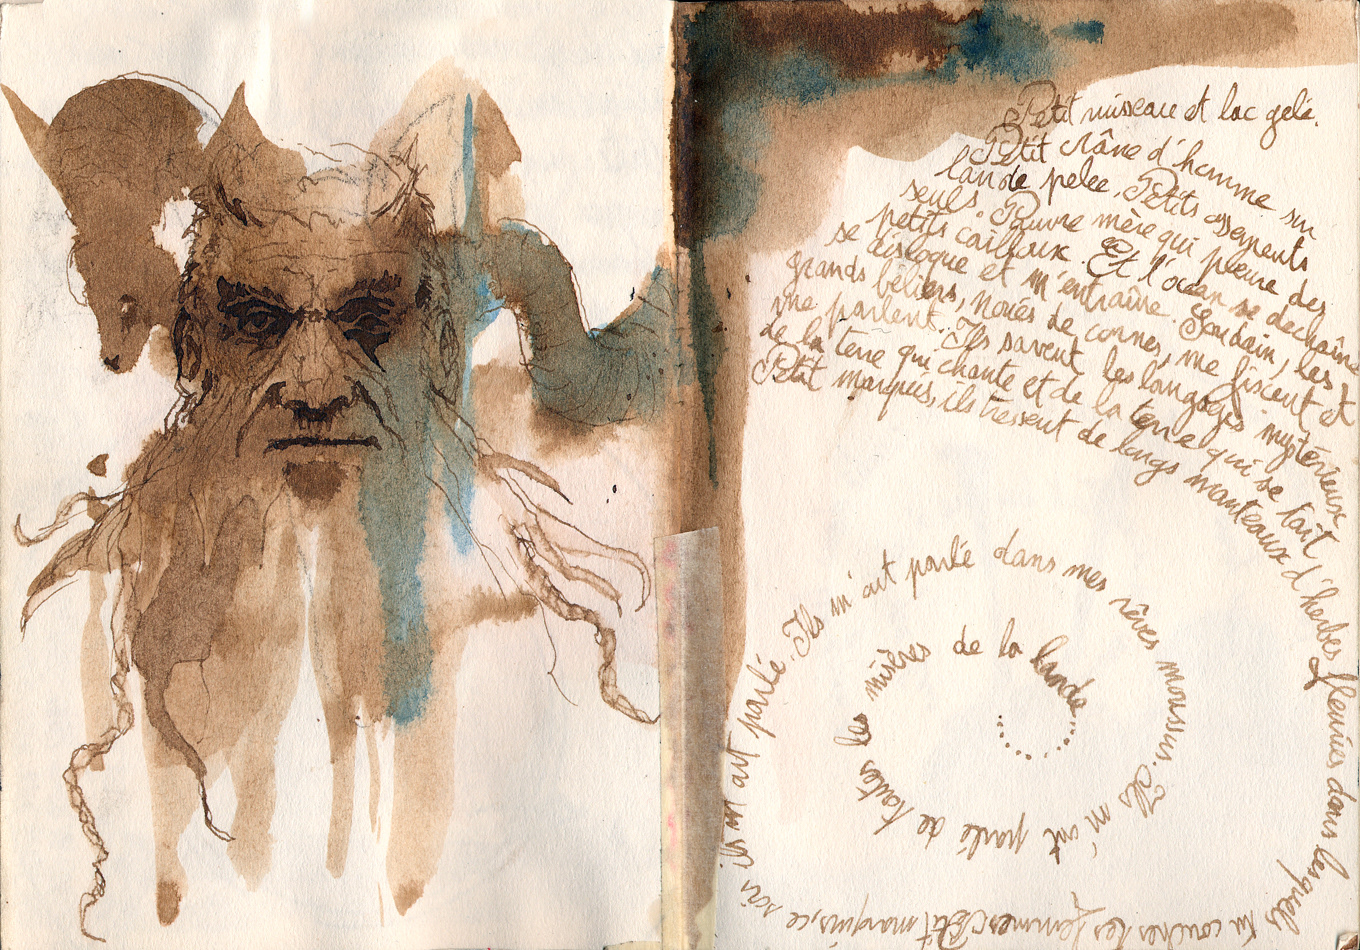 Petit ruisseau et lac gelé.
Petit crâne d'homme sur
lande pelée. Petits ossements
seuls. Pauvre mère qui pleure des
petits cailloux. Et l'océan se déchaîne
se disloque et m'entraîne. Soudain, les
grands béliers, noués de cornes, me fixent et
me parlent. Ils savent les langages mystérieux
de la terre qui chante et de la terre qui se tait
Petit marquis, ils tressent de longs manteaux d'herbes fleuries dans lesquels tu couches les femmes. Petit marquis, ce soir ils m'ont parlé. Ils m'ont parlé dans mes rêves moussus. Ils m'ont parlé de toutes les misères de la lande......